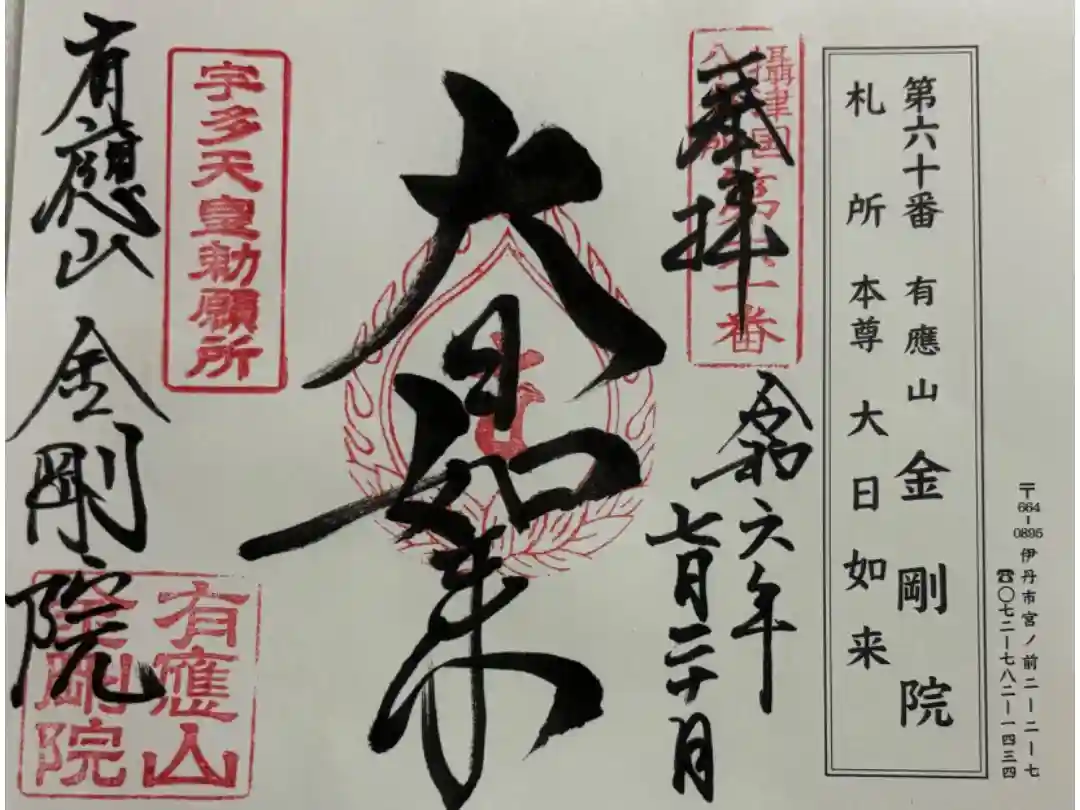 〒664-0895 伊丹市宮ノ前二ー二ー七
☎〇七二ー七八二ー一四三四
第六十番 有應山 金剛院
札所 本尊 大日如来
奉拝
攝津国
第六十番
令和六年
七月二十日
大日如来
宇多天皇勅願所
有應山 金剛院
有應山
金剛院